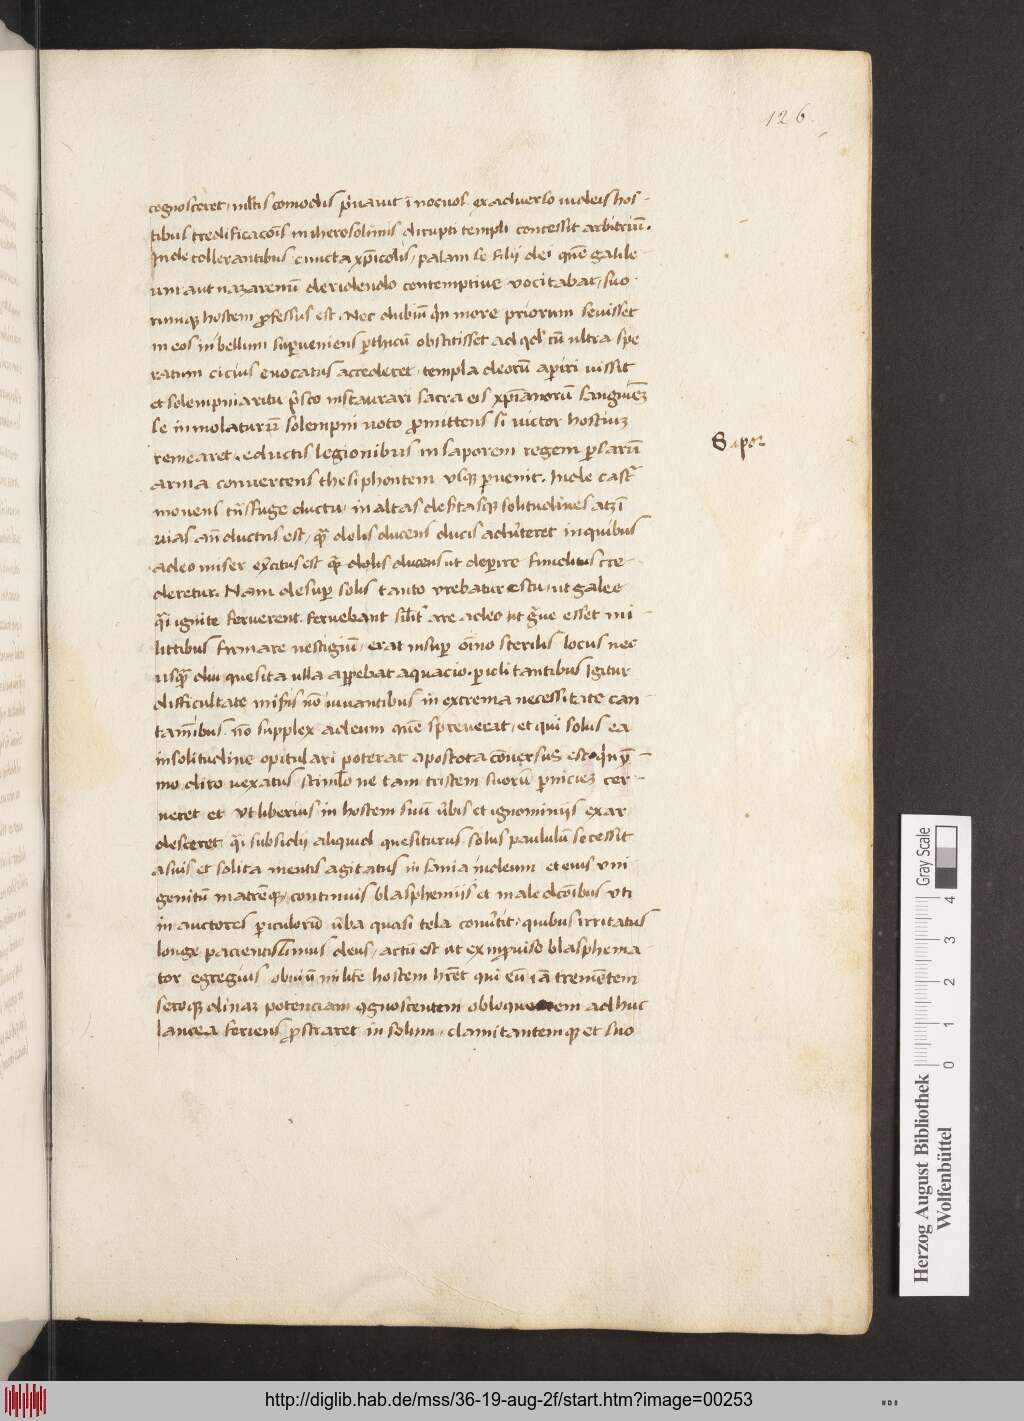 126.
cognosceret, mltis comodis p̄uauit īnocuos. ex aduerso iudeis hos-
tibus reedificacōis in iherosolimis dirupti templi concessit arbitriū.
Inde tollerantibus cuncta xp̄icolis, palam se filij dei quē galile
um aut nazarenū deridendo contemptiue vocitabat, suo
rumq hostem ꝓfessus est. Nec dubiū qn more priorum seuisset
in eos in bellum suꝑueniens ꝑthicū obstitisset ad qd cū ultra spe
ratum cicius euocatus accederet, templa deorū aperiri iussit
et solempnia ritu pisco instaurari sacra eis xp̄ianorū sanguinē
se inmolaturū solempni uoto ꝓmittens si uictor hostium
remearet. eductis legionibus in saporem regem ꝑsarū
arma conuertens thesiphontem usq ꝑuenit. Inde castra
mouens tnsfuge ductu, in altas desertasq solitudines
uias adductus est, dolis ducens ducis aduerteret in quibus
adeo miser exercitus est dolis ducens ut deperire funditus cre-
deretur. Nam desuper solis tanto urebatur estu, ut galee
q̄si ignite feruerent. feruebant silit are adeo ut gue esset mi-
litibus firmare uestigiū, erat insup oīno sterilis locus nec
usq̄ diu quesita ulla apparebat aquacio. periclitantibus igitur
difficultate nō iuuantibus in extrema necessitate
nō supplex ad eum quē spreuerat, et qui solus ea
in solitudine opitulari poterat apostota cōuersus est,
mo diro uexatus stimlo ne tam tristem suorū ꝑniciem cer-
neret et ut liberius in hostem suū ubis et ignominijs exar
desceret, q̄si subsidij aliquid quesiturus solus paululū secessit
a suis et solita mentis agitatus insania in deum et eius vni
genitū matremq, continuis blasphemijs et maledcōibus uti
in auctores ꝑiculorū uba quasi tela conutit, quibus irritatus
longe pacientissimus deus, actū est ut ex inprouiso blasphema-
tor egregius obuiū milite hostem hret qui eū iā trementem
seroq diuinam potenciam cognoscentem obloquentem adhuc
lancea feriens ꝓstraret in solum, clamitantemq et suo
Sapor
Herzog August Bibliothek
Wolfenbüttel
Gray Scale
0 1 2 3 4
http://diglib.hab.de/mss/36-19-aug-2f/start.htm?image=00253